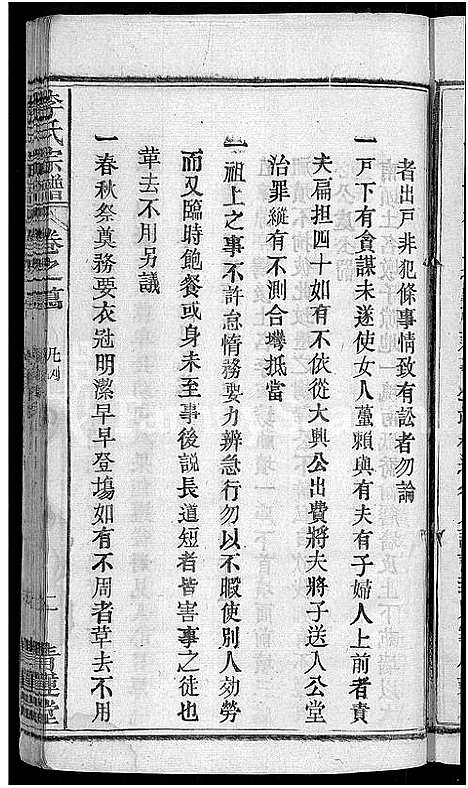 者出戸非犯條事情致有訟者勿論
一戸下有貪謀未遂使女人蠆賴與有夫有子婦人上前者責
夫扁担四十如有不依從大興公出費將夫將子送入公堂
治罪縱有不測合灣抵當
一祖上之事不許怠惰務要力辨急行勿以不暇使別人効勞
而又臨時飽餐或身未至事後説長道短者皆害事之徒也
草去不用另議
一春秋祭奠務要衣冠明潔早早登塲如有不周者草去不用
李氏宗譜
卷之一